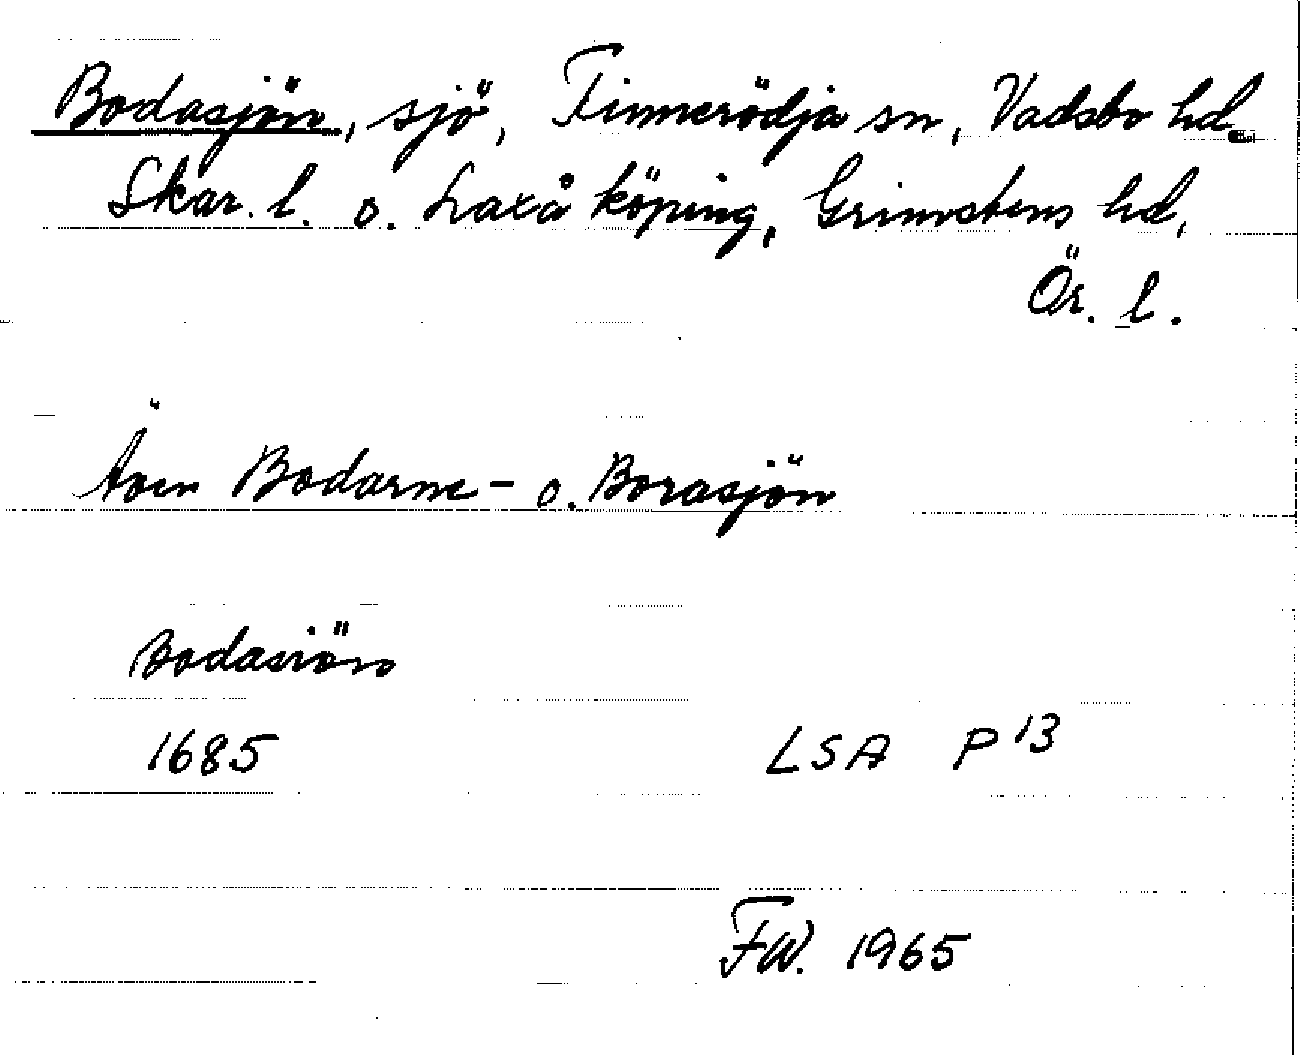 Bodasjön, sjö, Finnerödja sn, Vadsbo hd.
Skar. l. o. Laxå köping, Grimstens hd,
Ör. l.
Även Bodarne- o. Borasjön
Bodasiön
1685 LSA P 13
FW. 1965